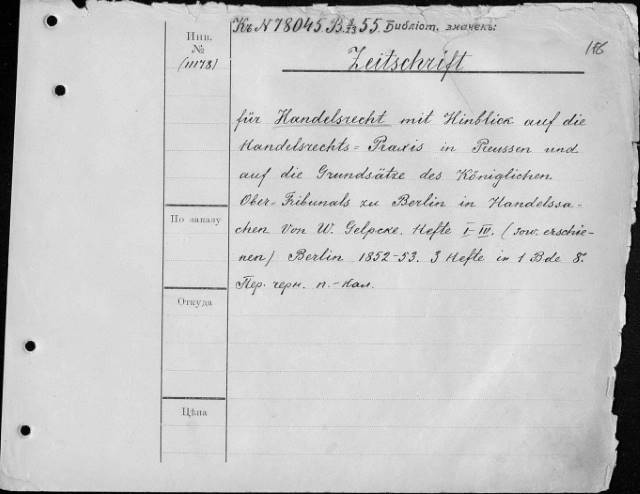 Къ N 78045. B 55. Библіот. значекъ:
186
Инв.
№
(11178)
Zeitschrift
für Handelsrecht mit Hinblick auf die
Handelsrechts=Praxis in Preussen und
auf die Grundsätze des Königlichen
Ober-Tribunals zu Berlin in Handelssa-
chen von W. Gelpcke. Hefte I-III. (sow. erschie-
nen) Berlin 1852-53. 3 Hefte in 1 Bde 8º.
Пер. черн. п.-кал.
По заказу
Откуда
Цѣна